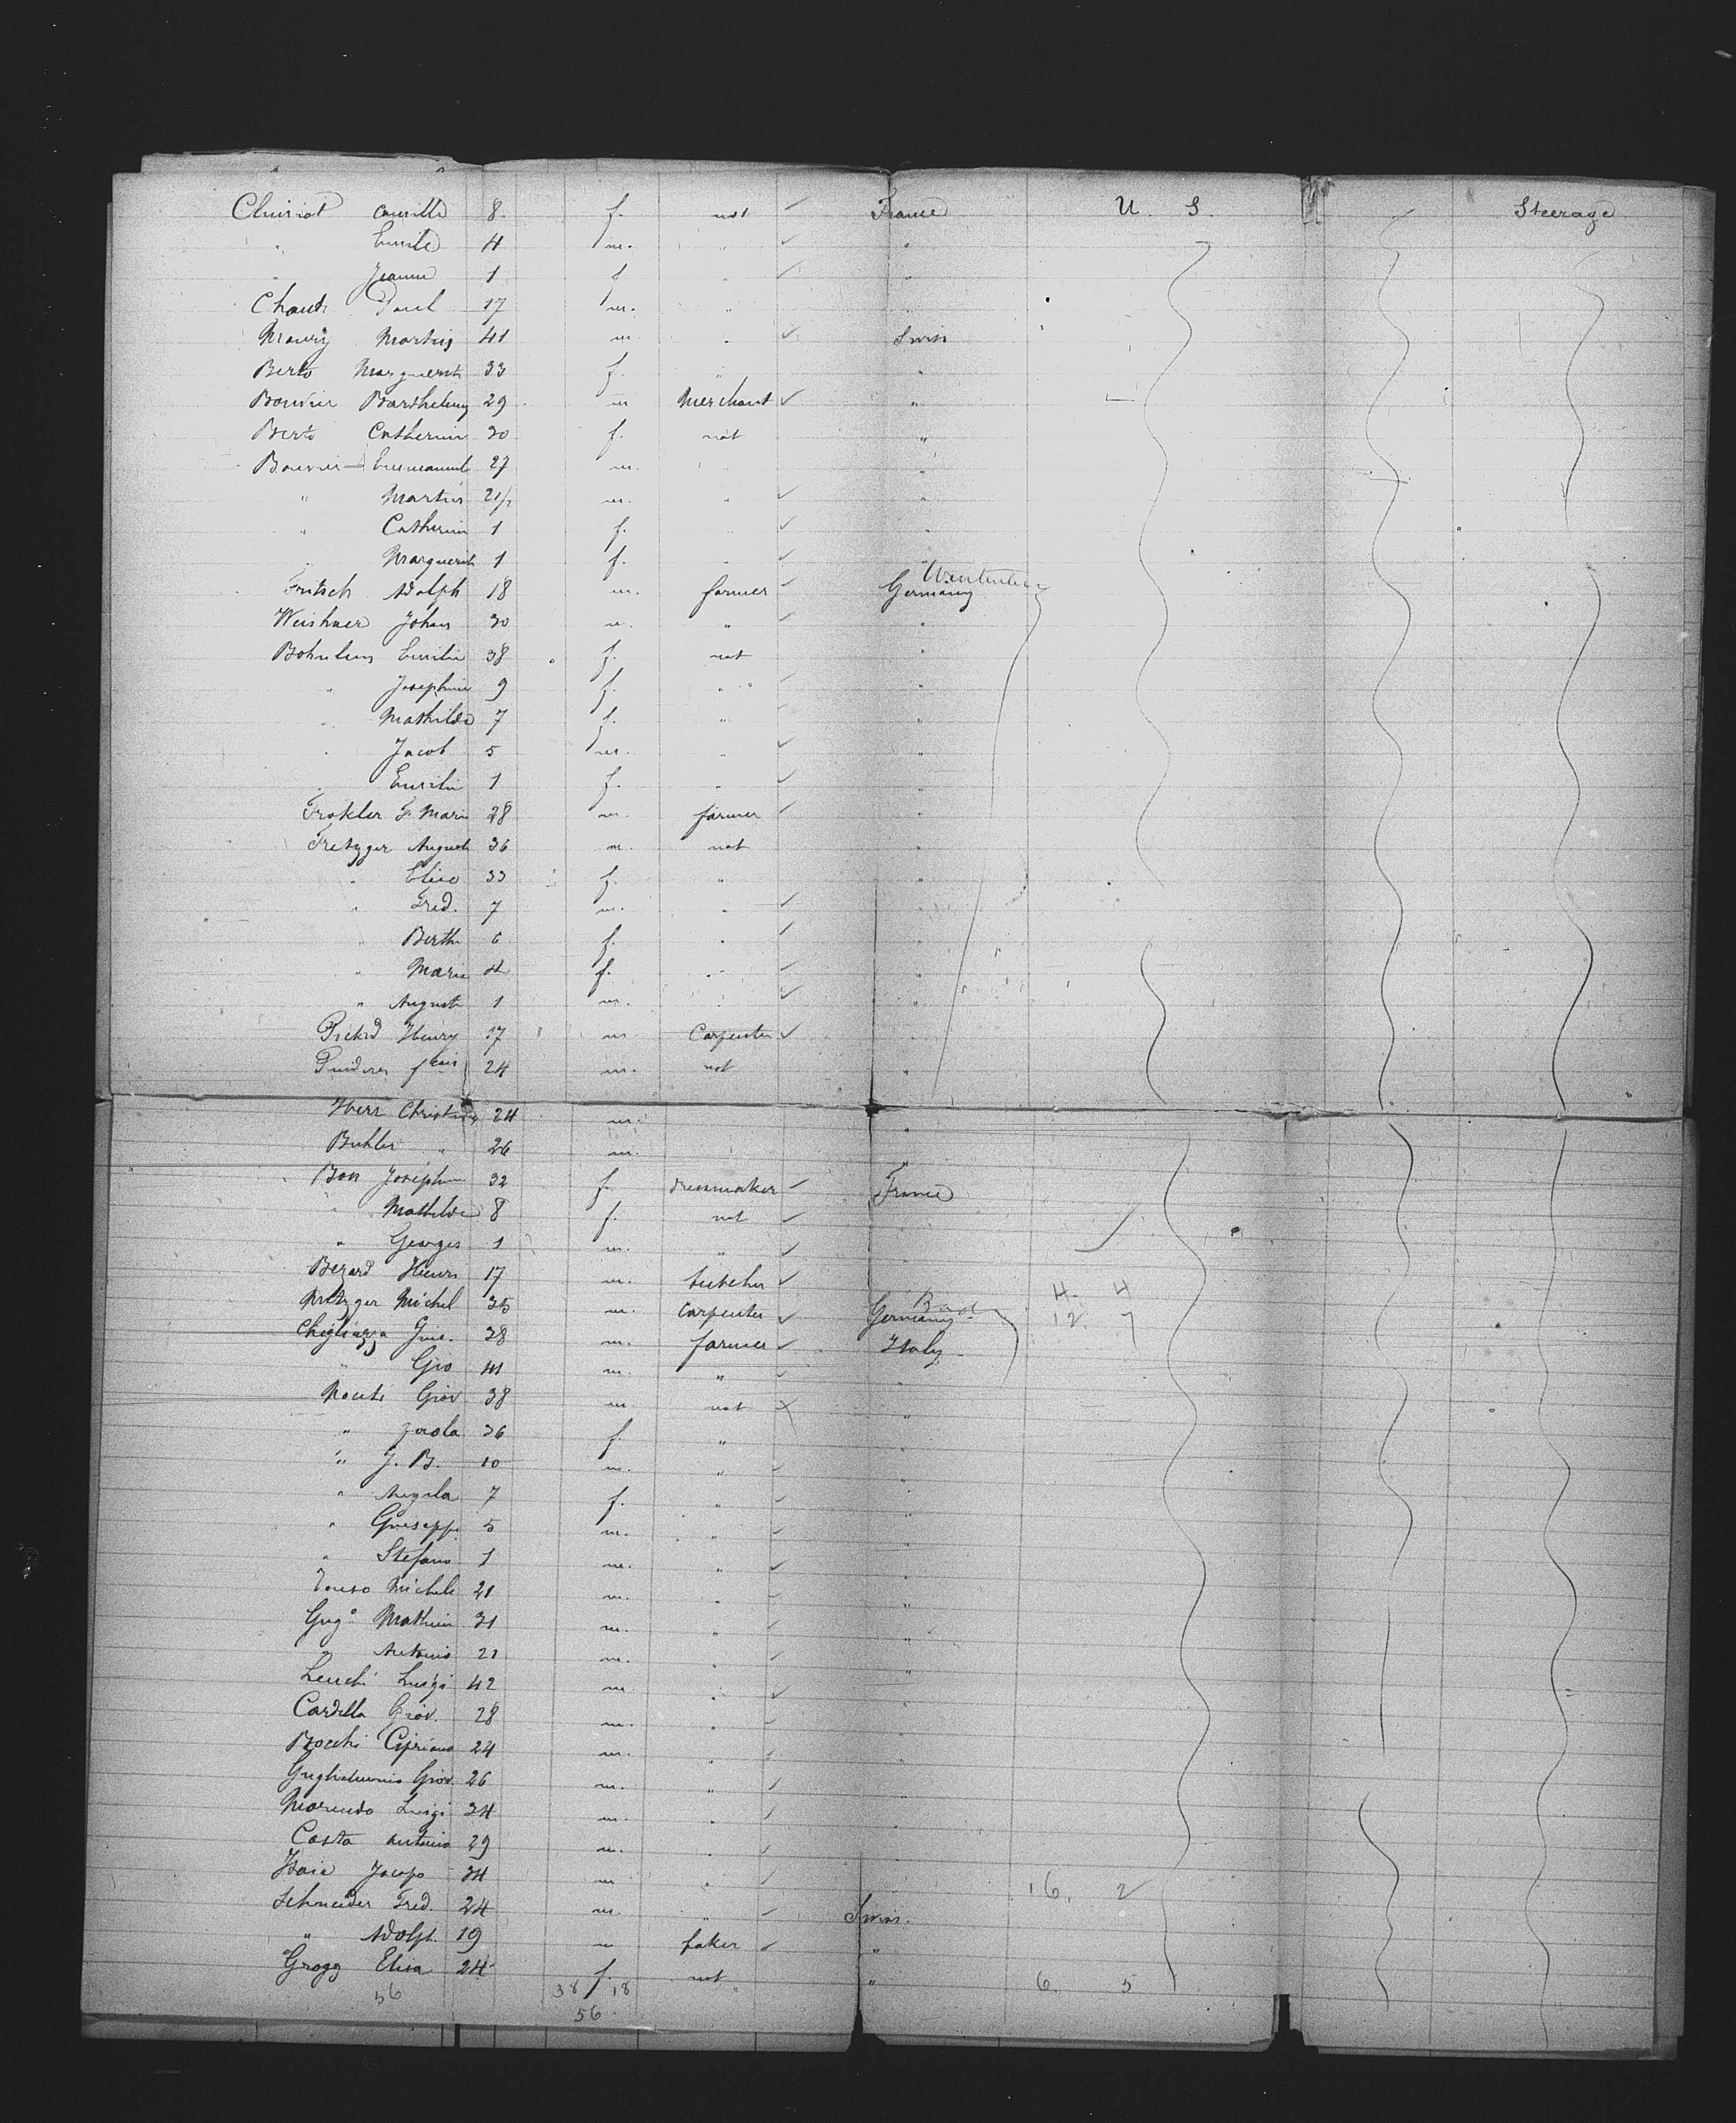 Camille 8 f. not France U. S. Steerage
" Emile 4 m. "
" Jeanne 1 f "
Paul 17 m. "
Maury Martin 41 m " Swiss
Berto Marguerite 33 f. " "
Bouvier Barthelemy 29 m Merchant "
Berto Catherine 30 f. not "
Bouvier Emmanuel 27 m. " "
" Martin 2 1/2 m. " "
" Catherine 1 f. " "
" Marguerite 1 f. " "
Fritsch Adolph 18 m. farmer Germany
Johan 30 m. " "
Emilie 38 f. not "
" Josephine 9 f. " "
" Mathilde 7 f. " "
" Jacob 5 m. " "
" Emilie 1 f. " "
Frokler F. Marie 28 m. farmer "
Fretzger August 36 m. not "
" Elise 33 f. " "
" Fred. 7 m. " "
" Berthe 6 f. " "
" Marie 4 f. " "
" August 1 m. " "
Henry 17 m Carpenter "
24 m. not "
Herr Christian 24 m. "
Buhler " 26 m. "
Bon Josephine 32 f. dressmaker France
" Mathilde 8 f. not "
" Georges 1 m. " "
Bezard Henri 17 m. butcher "
4. 4
Metzger Michel 35 m. Carpenter Germany Baden 12 7
Chigliazza Giu. 38 m. farmer Italy
" Gio 41 m. " "
Giov 38 m. not "
" 36 f. " "
" J. B. 10 m. " "
" Angela 7 f. " "
" Giuseppe 5 m. " "
" Stefano 1 m. " "
Michele 21 m. " "
31 m. " "
" Antonio 21 m. " "
Luigi 42 m " "
Cardella Giov. 28 m. " "
Bocchi Cipriano 24 m. " "
Guglielmonis Giov. 26 m. " "
Luigi 34 m. " "
Costa Antonio 29 m. " "
Jacopo 34 m " 16. 2
Schneider Fred. 24 m. " Swiss.
" Adolph. 19 m baker "
Grogg Elisa 24 f. not " 6. 5
56 38 / 18
56